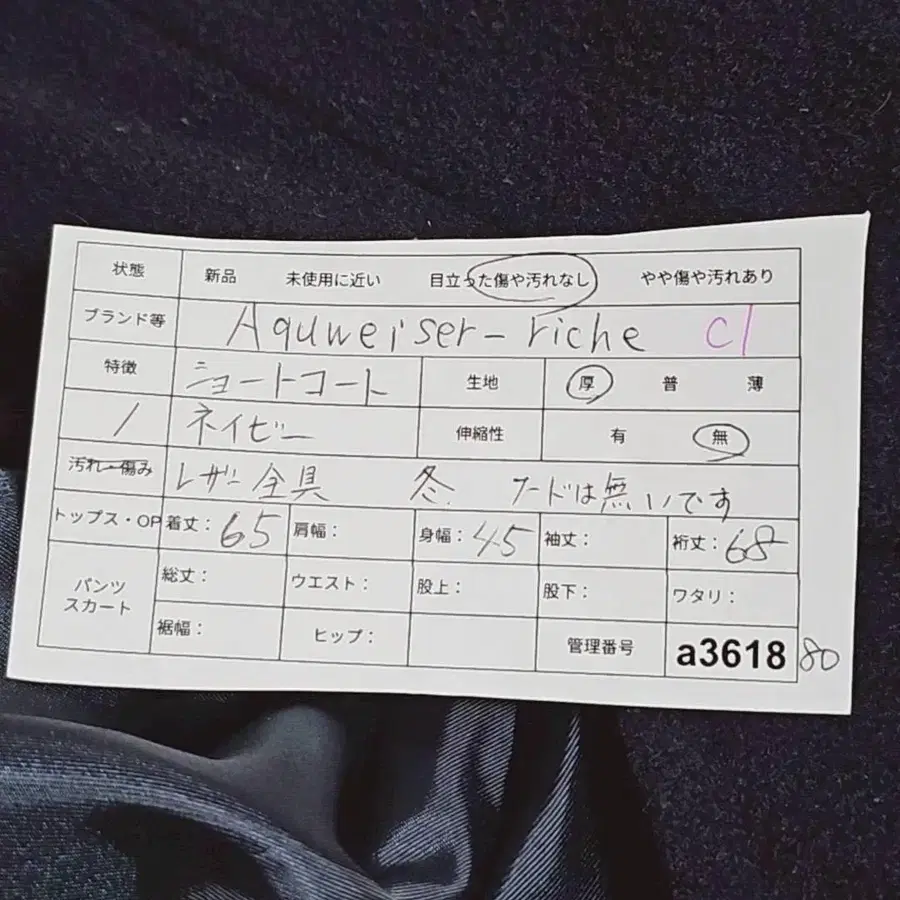 状態 新品 未使用に近い 目立った傷や汚れなし やや傷や汚れあり
ブランド等 Aquweiser-riche c1
特徴 ショートコート 生地 厚 普 薄
/ ネイビー 伸縮性 有 無
汚れ・傷み レザー全具 冬 フードは無いです
トップス・OP 着丈：65 肩幅： 身幅：45 袖丈： 裄丈：68
パンツ スカート 総丈： ウエスト： 股上： 股下： ワタリ：
裾幅： ヒップ： 管理番号 a3618 80